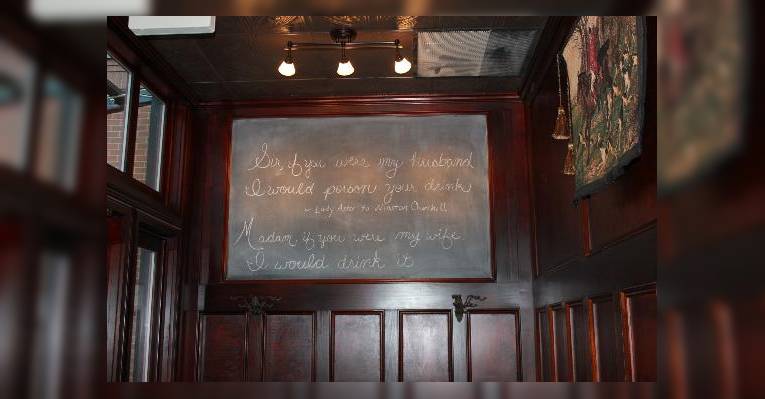 Sir, if you were my husband
I would poison your drink
- Lady Astor to Winston Churchill
Madam, if you were my wife
I would drink it